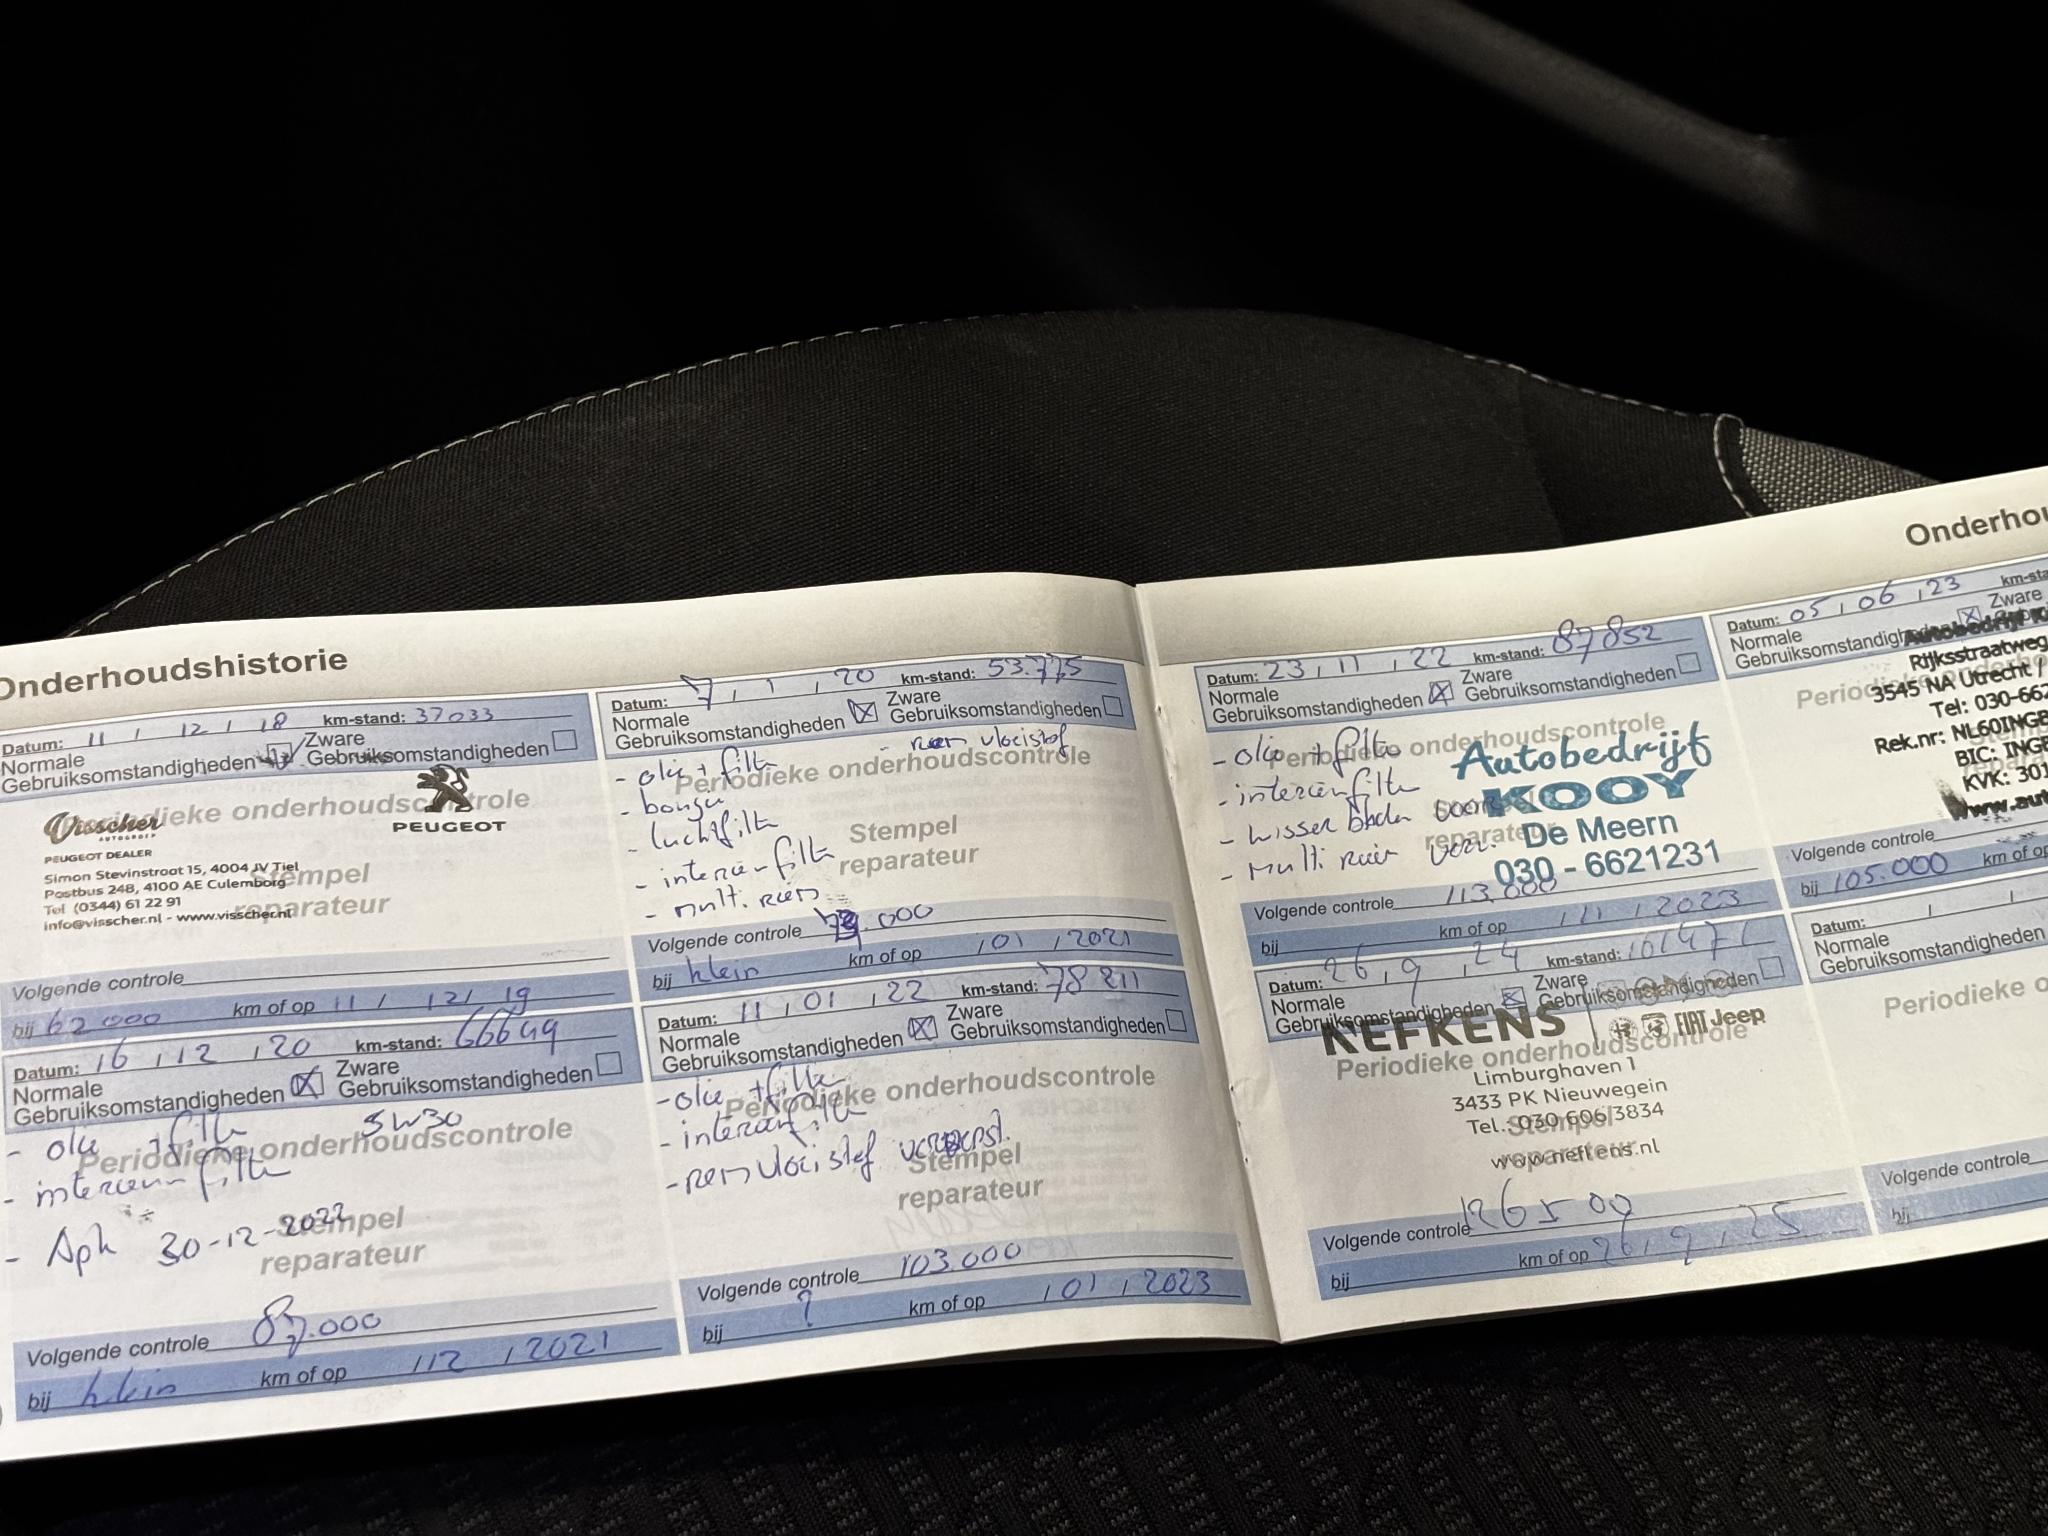 Onderhoudshistorie
Datum: 11 / 12 / 18 km-stand: 37033
Normale Gebruiksomstandigheden Zware Gebruiksomstandigheden
Periodieke onderhoudscontrole
Visscher
AUTOGROEP
PEUGEOT
PEUGEOT DEALER
Simon Stevinstraat 15, 4004 JV Tiel
Postbus 248, 4100 AE Culemborg
Tel (0344) 61 22 91
info@visscher.nl - www.visscher.nl
Stempel
reparateur
Volgende controle
bij 62000 km of op 11 / 12 / 19
Datum: 16 / 12 / 20 km-stand: 66649
Normale Gebruiksomstandigheden Zware Gebruiksomstandigheden
- olie + filter 5W30
Periodieke onderhoudscontrole
- interieur-filter
- Apk 30-12-2022
Stempel
reparateur
Volgende controle 87.000
bij klein km of op / 12 / 2021
Datum: 7 / 1 / 20 km-stand: 53.775
Normale Gebruiksomstandigheden Zware Gebruiksomstandigheden
- olie + filter - rem vloeistof
Periodieke onderhoudscontrole
- bougie
- luchtfilter
- interieur-filter
- multi. riem
Stempel
reparateur
Volgende controle .000
bij klein km of op / 01 / 2021
Datum: 11 / 01 / 22 km-stand: 78211
Normale Gebruiksomstandigheden Zware Gebruiksomstandigheden
- olie + filter
Periodieke onderhoudscontrole
- interieurfilter
- remvloeistof
Stempel
reparateur
Volgende controle 103.000
bij ? km of op / 01 / 2023
Datum: 23 / 11 / 22 km-stand: 87852
Normale Gebruiksomstandigheden Zware Gebruiksomstandigheden
- olie + filter
Periodieke onderhoudscontrole
- interieurfilter
- wisser bladen voor
- Multi riem voor.
Stempel
reparateur
Autobedrijf
KOOY
De Meern
030 - 6621231
Volgende controle 113.000
bij km of op / 11 / 2023
Datum: 26 / 9 / 24 km-stand: 101471
Normale Gebruiksomstandigheden Zware Gebruiksomstandigheden
NEFKENS FIAT Jeep
Periodieke onderhoudscontrole
Limburghaven 1
3433 PK Nieuwegein
Tel.: 030 606 3834
Stempel
reparateur
www.nefkens.nl
Volgende controle 126500
bij km of op 26 / 9 / 25
Onderhou
Datum: 05 / 06 / 23 km-sta
Normale Gebruiksomstandigh Zware
Autobedrijf
Rijksstraatweg
Periodieke
3545 NA Utrecht /
Tel: 030-662
Rek.nr: NL60INGB
BIC: INGB
KVK: 301
www.aut
Volgende controle
bij 105.000 km of op
Datum: / /
Normale
Gebruiksomstandigheden
Periodieke o
Volgende controle
bij